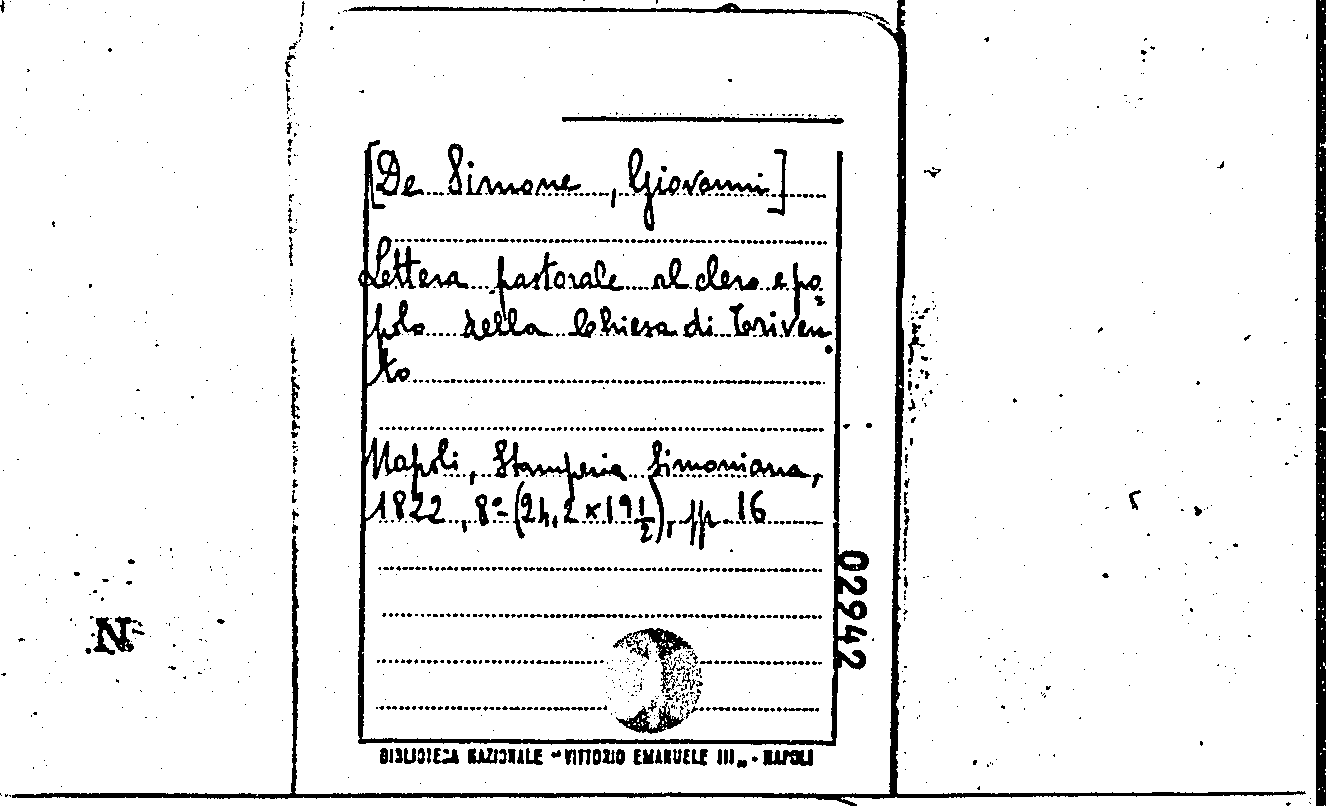 [De Simone, Giovanni]
Lettera pastorale al clero e po=
polo della Chiesa di Triven.
to
Napoli, Stamperia Simoniana,
1822, 8º (24,2 x 19 1/2), pp. 16
02942
N
BIBLIOTECA NAZIONALE "VITTORIO EMANUELE III" - NAPOLI